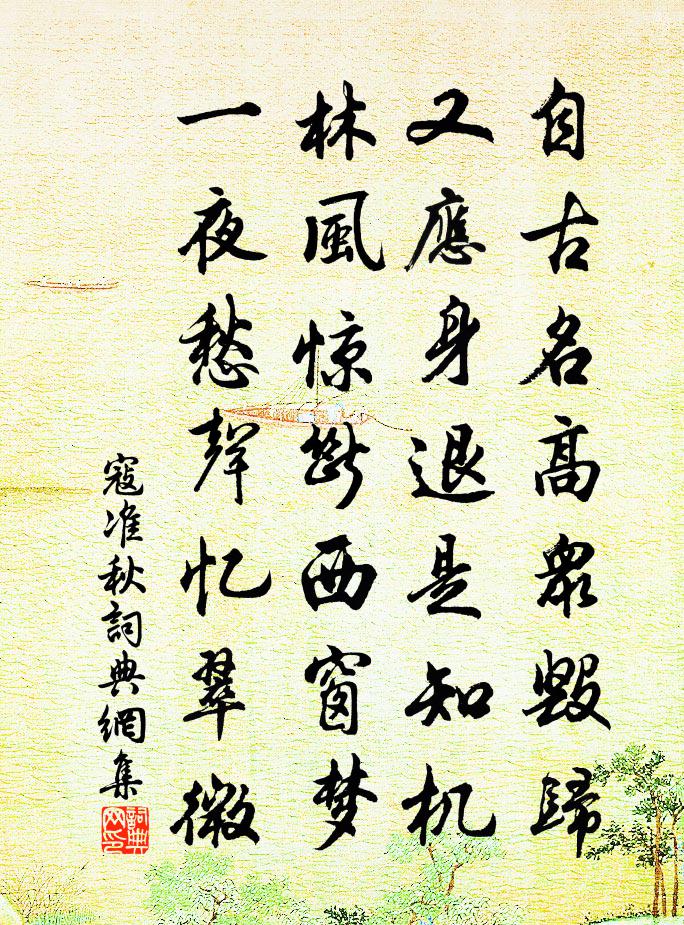 自古名高眾毀歸
又應身退是知机
林風惊斷西窗梦
一夜愁聲忆翠微
寇准秋詞典網集
詞典网印